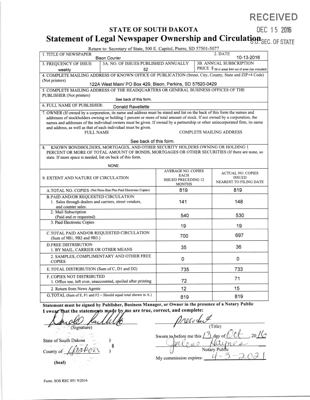 RECEIVED
DEC 15 2016
S.D. SEC. OF STATE
STATE OF SOUTH DAKOTA
Statement of Legal Newspaper Ownership and Circulation
Return to: Secretary of State, 500 E. Capitol, Pierre, SD 57501-5077
1. TITLE OF NEWSPAPER
Bison Courier
2. DATE
10-13-2016
3. FREQUENCY OF ISSUE
weekly
3A. NO. OF ISSUES PUBLISHED ANNUALLY
52
3B. ANNUAL SUBSCRIPTION
PRICE $
4. COMPLETE MAILING ADDRESS OF KNOWN OFFICE OF PUBLICATION (Street, City, County, State and ZIP+4 Code)
(Not Printers)
122A West Main/ PO Box 429, Bison, Perkins, SD 57620-0429
5. COMPLETE MAILING ADDRESS OF THE HEADQUARTERS OR GENERAL BUSINESS OFFICES OF THE
PUBLISHER (Not printers)
See back of this form.
6. FULL NAME OF PUBLISHER:
Donald Ravellette
7. OWNER (If owned by a corporation, its name and address must be stated and list on the back of this form the names and
addresses of stockholders owning or holding 1 percent or more of total amount of stock. If not owned by a corporation, the
names and addresses of the individual owners must be given. If owned by a partnership or other unincorporated firm, its name
and address, as well as that of each individual must be given.
FULL NAME
COMPLETE MAILING ADDRESS
See back of this form.
8. KNOWN BONDHOLDERS, MORTGAGES, AND OTHER SECURITY HOLDERS OWNING OR HOLDING 1
PERCENT OR MORE OF TOTAL AMOUNT OF BONDS, MORTGAGES OR OTHER SECURITIES (If there are none, so
state. If more space is needed, list on back of this form.
NONE.
9. EXTENT AND NATURE OF CIRCULATION
AVERAGE NO. COPIES
EACH
ISSUED PRECEDING 12
MONTHS
ACTUAL NO. COPIES
ISSUED
NEAREST TO FILING DATE
A. TOTAL NO. COPIES (Net Press Run Plus Paid Electronic Copies)
819
819
B. PAID AND/OR REQUESTED CIRCULATION
1. Sales through dealers and carriers, street vendors,
and counter sales.
141
148
2. Mail Subscription
(Paid and or requested)
540
530
3. Paid Electronic Copies
19
19
C. TOTAL PAID AND/OR REQUESTED CIRCULATION
(Sum of 9B1, 9B2 and 9B3.)
700
697
D. FREE DISTRIBUTION
1. BY MAIL, CARRIER OR OTHER MEANS
35
36
2. SAMPLES, COMPLIMENTARY AND OTHER FREE
COPIES
0
0
E. TOTAL DISTRIBUTION (Sum of C, D1 and D2)
735
733
F. COPIES NOT DISTRIBUTED
1. Office use, left over, unaccounted, spoiled after printing
72
71
2. Return from News Agents
12
15
G. TOTAL (Sum of E, F1 and F2 - Should equal total shown in A.)
819
819
Statement must be signed by Publisher, Business Manager, or Owner in the presence of a Notary Public
I swear that the statements made by me are true, correct, and complete:
President
(Signature)
(Title)
State of South Dakota )
Sworn to before me this 13 day of Oct 2016
County of
Notary Public
(Seal)
My commission expires: 4-3-2021
Form: SOS REC 051 9/2016